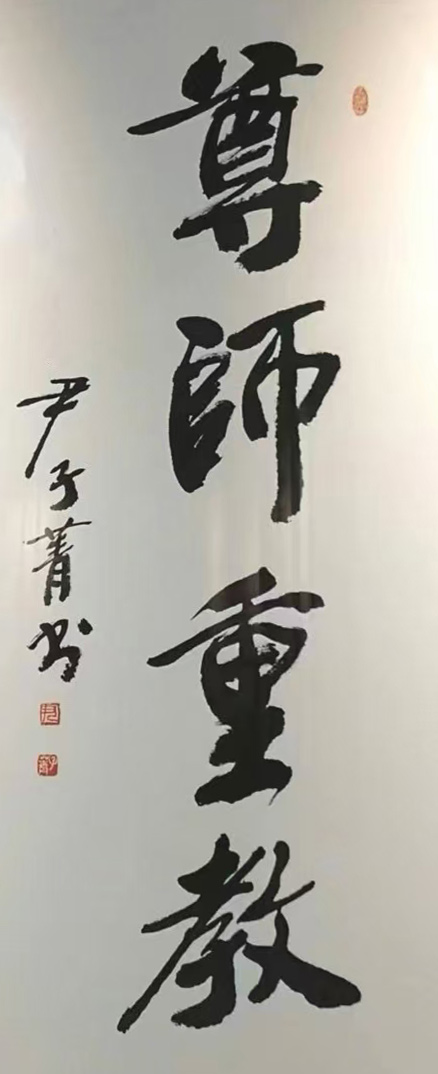 尊師重教
尹子菁书